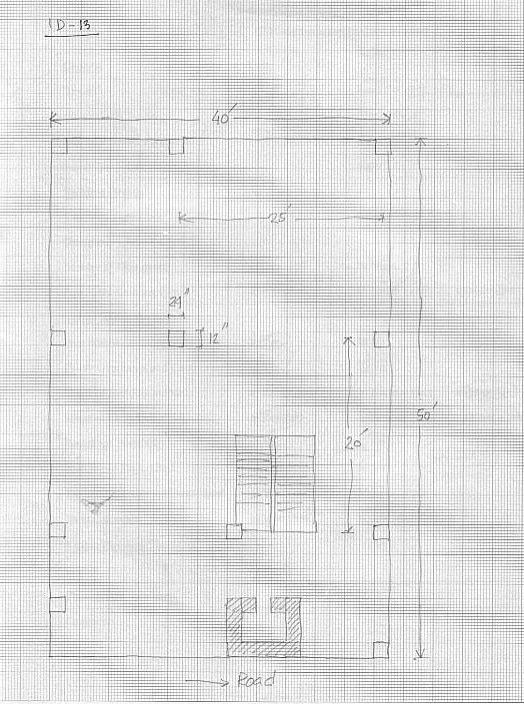 ID-13
40'
25'
24"
12"
20'
50'
Road